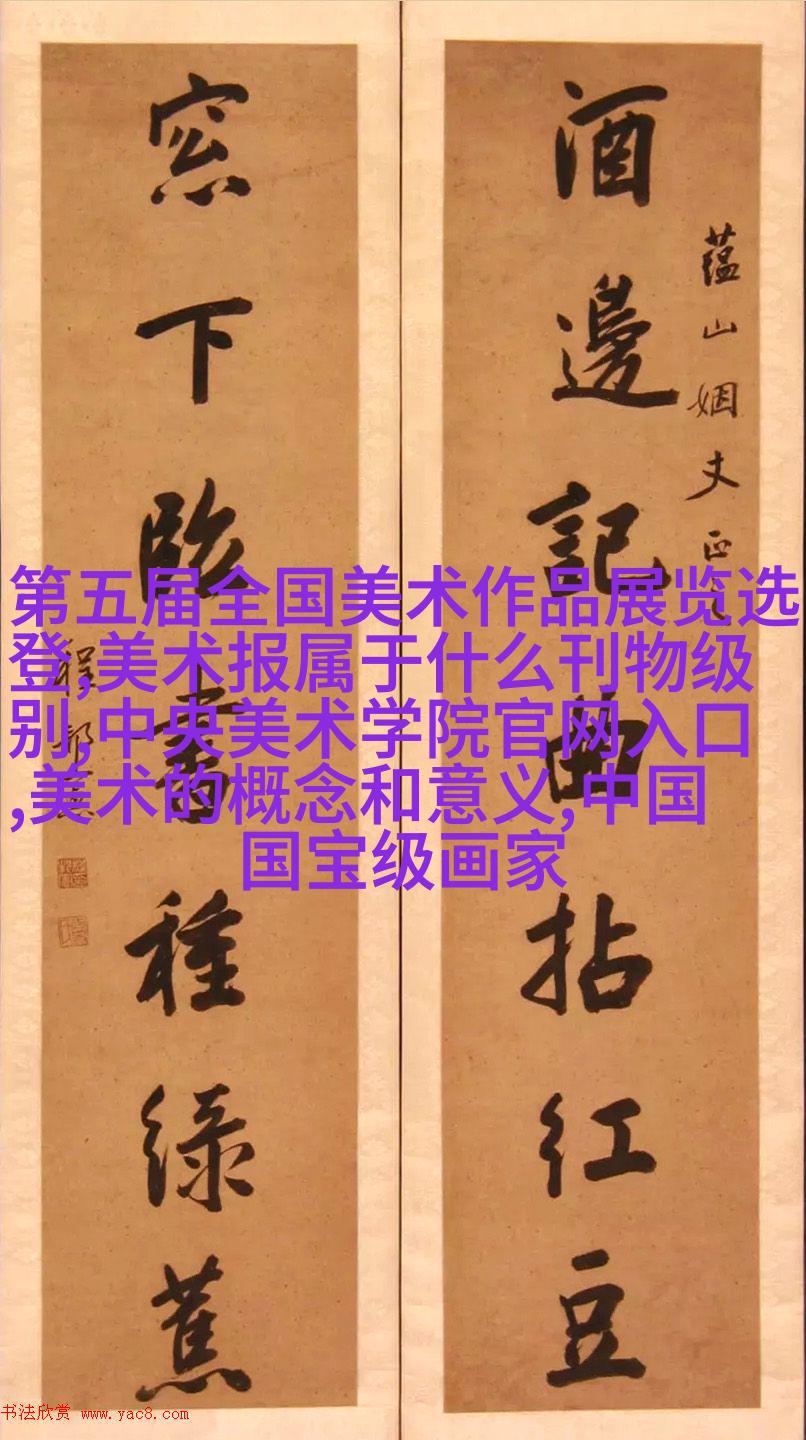 藴山姻丈正
酒邊記曲拈紅豆
窓下臨書種緑蕉
程
第五届全国美术作品展览选
登,美术报属于什么刊物级
别,中央美术学院官网入口
,美术的概念和意义,中国
国宝级画家
书法欣赏 www.yac8.com